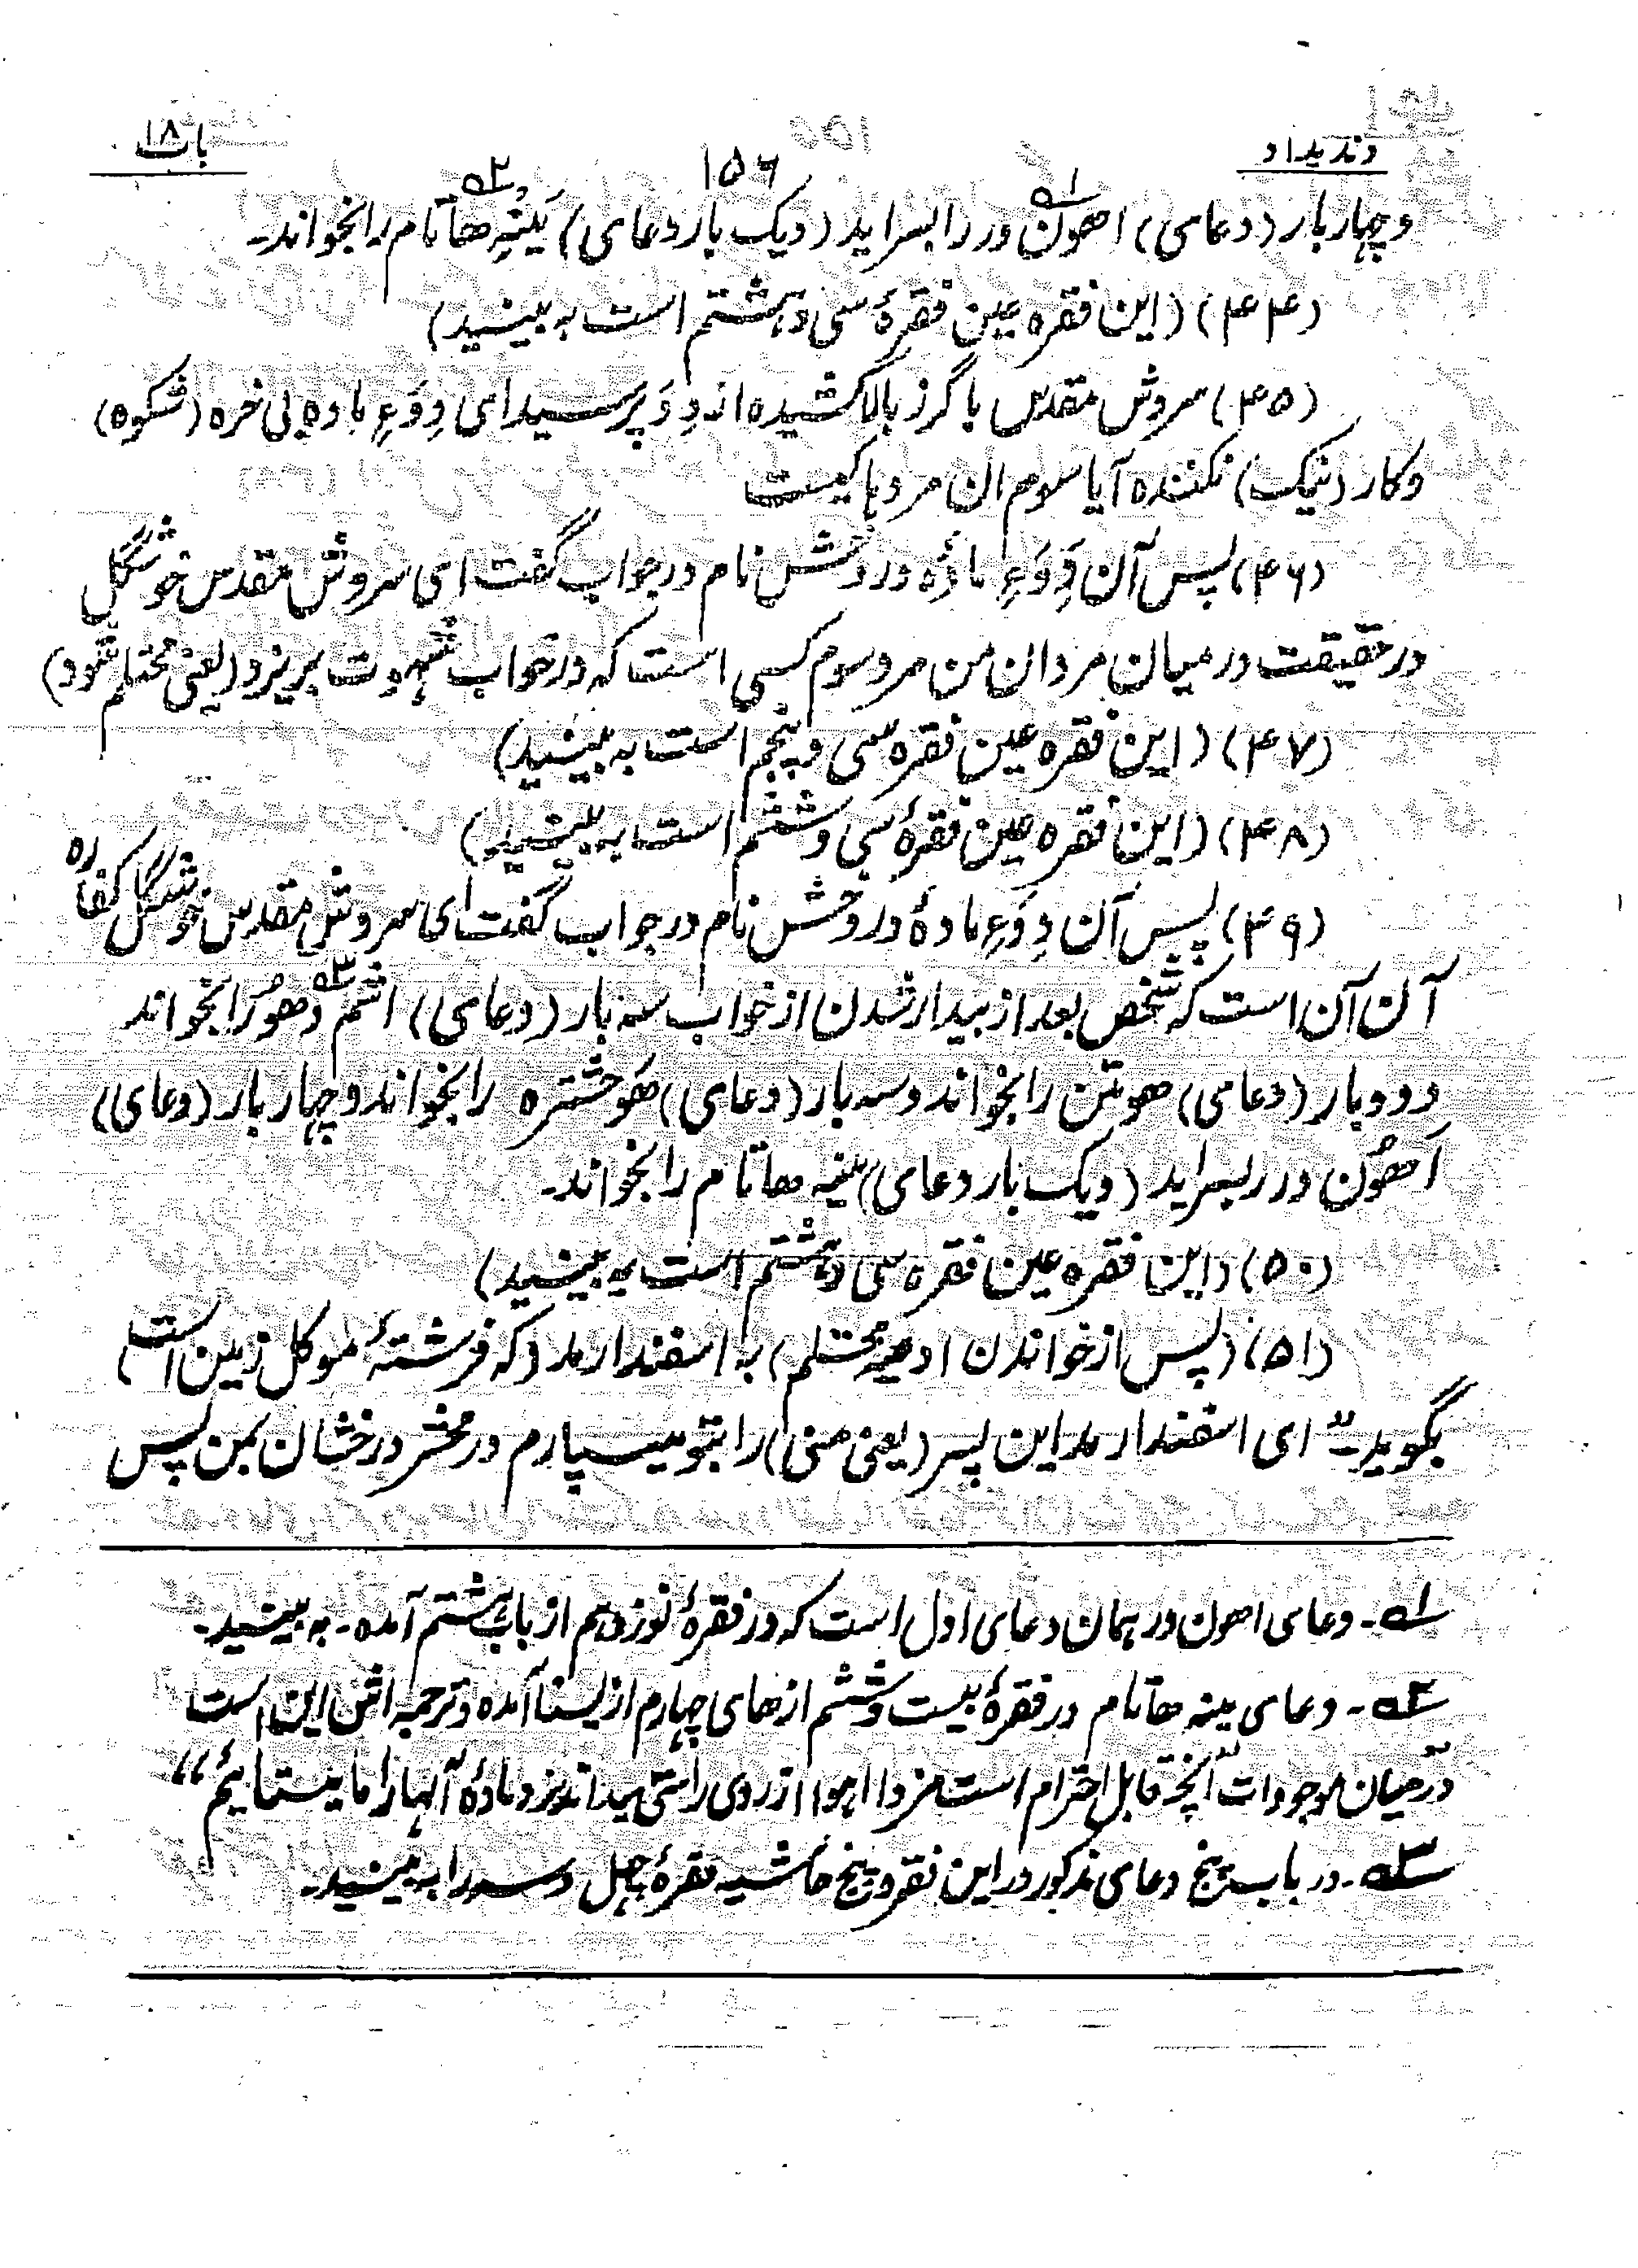 وندیداد
۱۵۶
باب ۱۸
وچهار بار (دعای) اهون ور را بسراید (ویک بار دعای) ینیه هاتام را بخواند۔
(۴۴) (این فقره عین فقرهٔ سی و هشتم است به بینید)
(۴۵) سروش مقدس با گرز بالا کشیده از دِوَ پرسید ای دِوَءِ ماده بی خره (شکوه)
و کار (نیک) نکننده آیا سوم آن مردها کیست
(۴۶) پس آن دِوَءِ مادهٔ دروخش نام در جواب گفت ای سروش مقدس خوشگل
در حقیقت در میان مردان من مرد سوم کسی است که در خواب شهوت بریزد (یعنی محتلم شود)
(۴۷) (این فقره عین فقره سی و پنجم است به بینید)
(۴۸) (این فقره عین فقرهٔ سی و ششم است به بینید)
(۴۹) پس آن دِوَءِ مادهٔ دروخش نام در جواب گفت ای سروش مقدس خوشگل کفاره
آن آن است که شخص بعد از بیدار شدن از خواب سه بار (دعای) اشم وهو را بخواند
و دو بار (دعای) هومتن را بخواند و سه بار (دعای) هوخشتره را بخواند و چهار بار (دعای)
اَهُون ور بسراید (ویک بار دعای) ینیه هاتام را بخواند۔
(۵۰) (این فقره عین فقره سی و هشتم است به بینید)
(۵۱) (پس از خواندن ادعیه محتلم) به اسفندارمد (که فرشتهٔ موکل زمین است)
بگوید۔" ای اسفندارمد این پسر (یعنی منی) را بتو میسپارم در محشر درخشان بمن پس
۱ـ دعای اهون ور همان دعای اول است که در فقرهٔ نوزدهم از باب هشتم آمده۔ به بینید۔
۲ـ دعای ینیه هاتام در فقرهٔ بیست و ششم از های چهارم از یسنا آمده و ترجمه اش این است
"در میان موجودات آنچه قابل احترام است مزدا اهورا از روی راستی میداند نر و مادهٔ آنها را ما میستاییم"
۳ـ در باب پنج دعای مذکور در این فقره پنج حاشیه فقرهٔ چهل و سه را به بینید۔